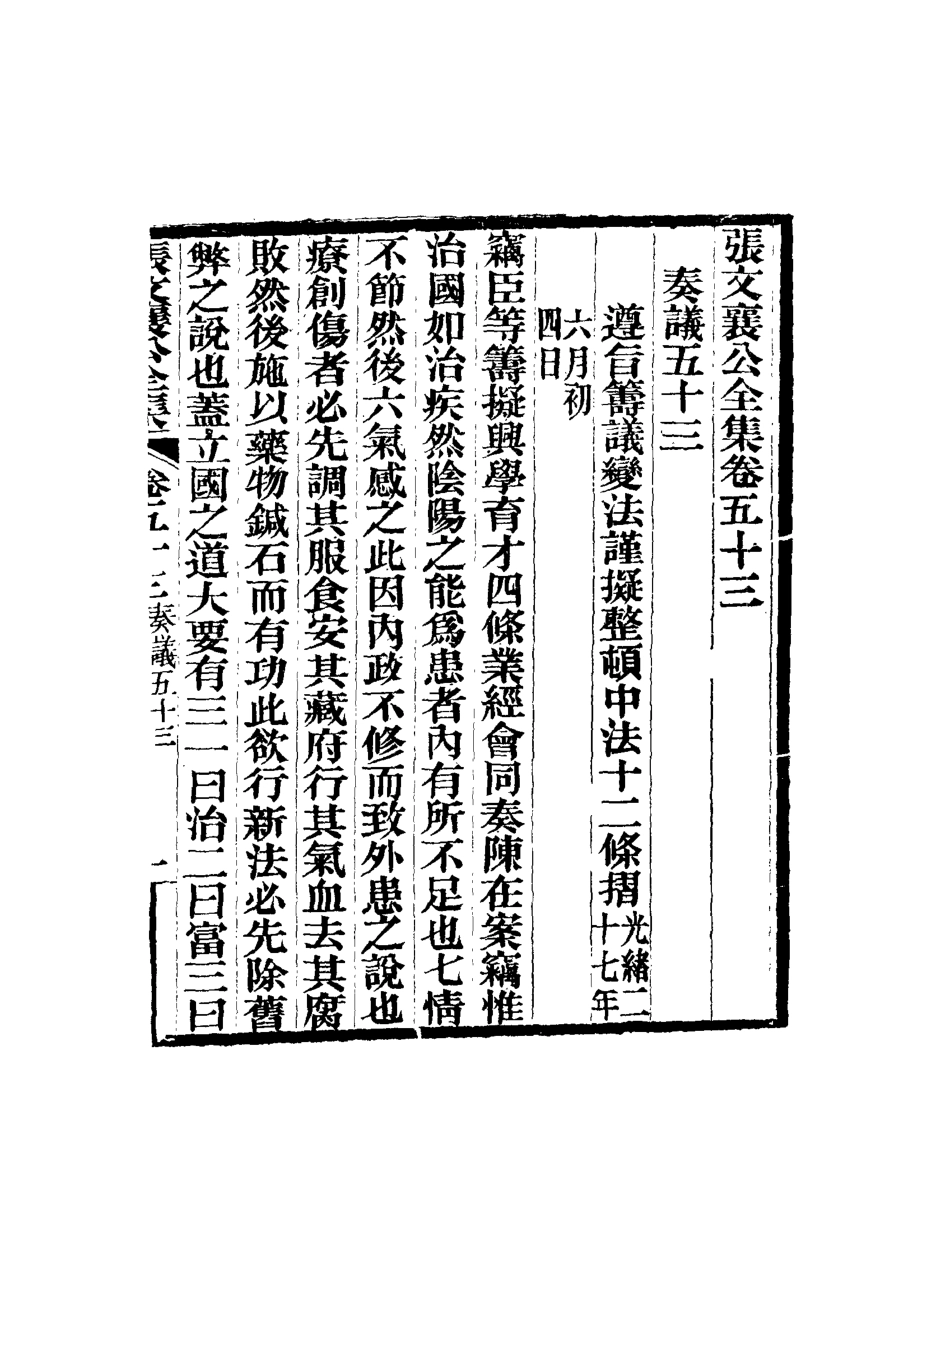 張文襄公全集卷五十三
奏議五十三
遵旨籌議變法謹擬整頓中法十二條摺光緒二十七年
六月初四日
竊臣等籌擬興學育才四條業經會同奏陳在案竊惟
治國如治疾然陰陽之能爲患者內有所不足也七情
不節然後六氣感之此因內政不修而致外患之說也
療創傷者必先調其服食安其藏府行其氣血去其腐
敗然後施以藥物鍼石而有功此欲行新法必先除舊
弊之說也蓋立國之道大要有三一曰治二曰富三曰
張文襄公全集 卷五十三 奏議五十三 一